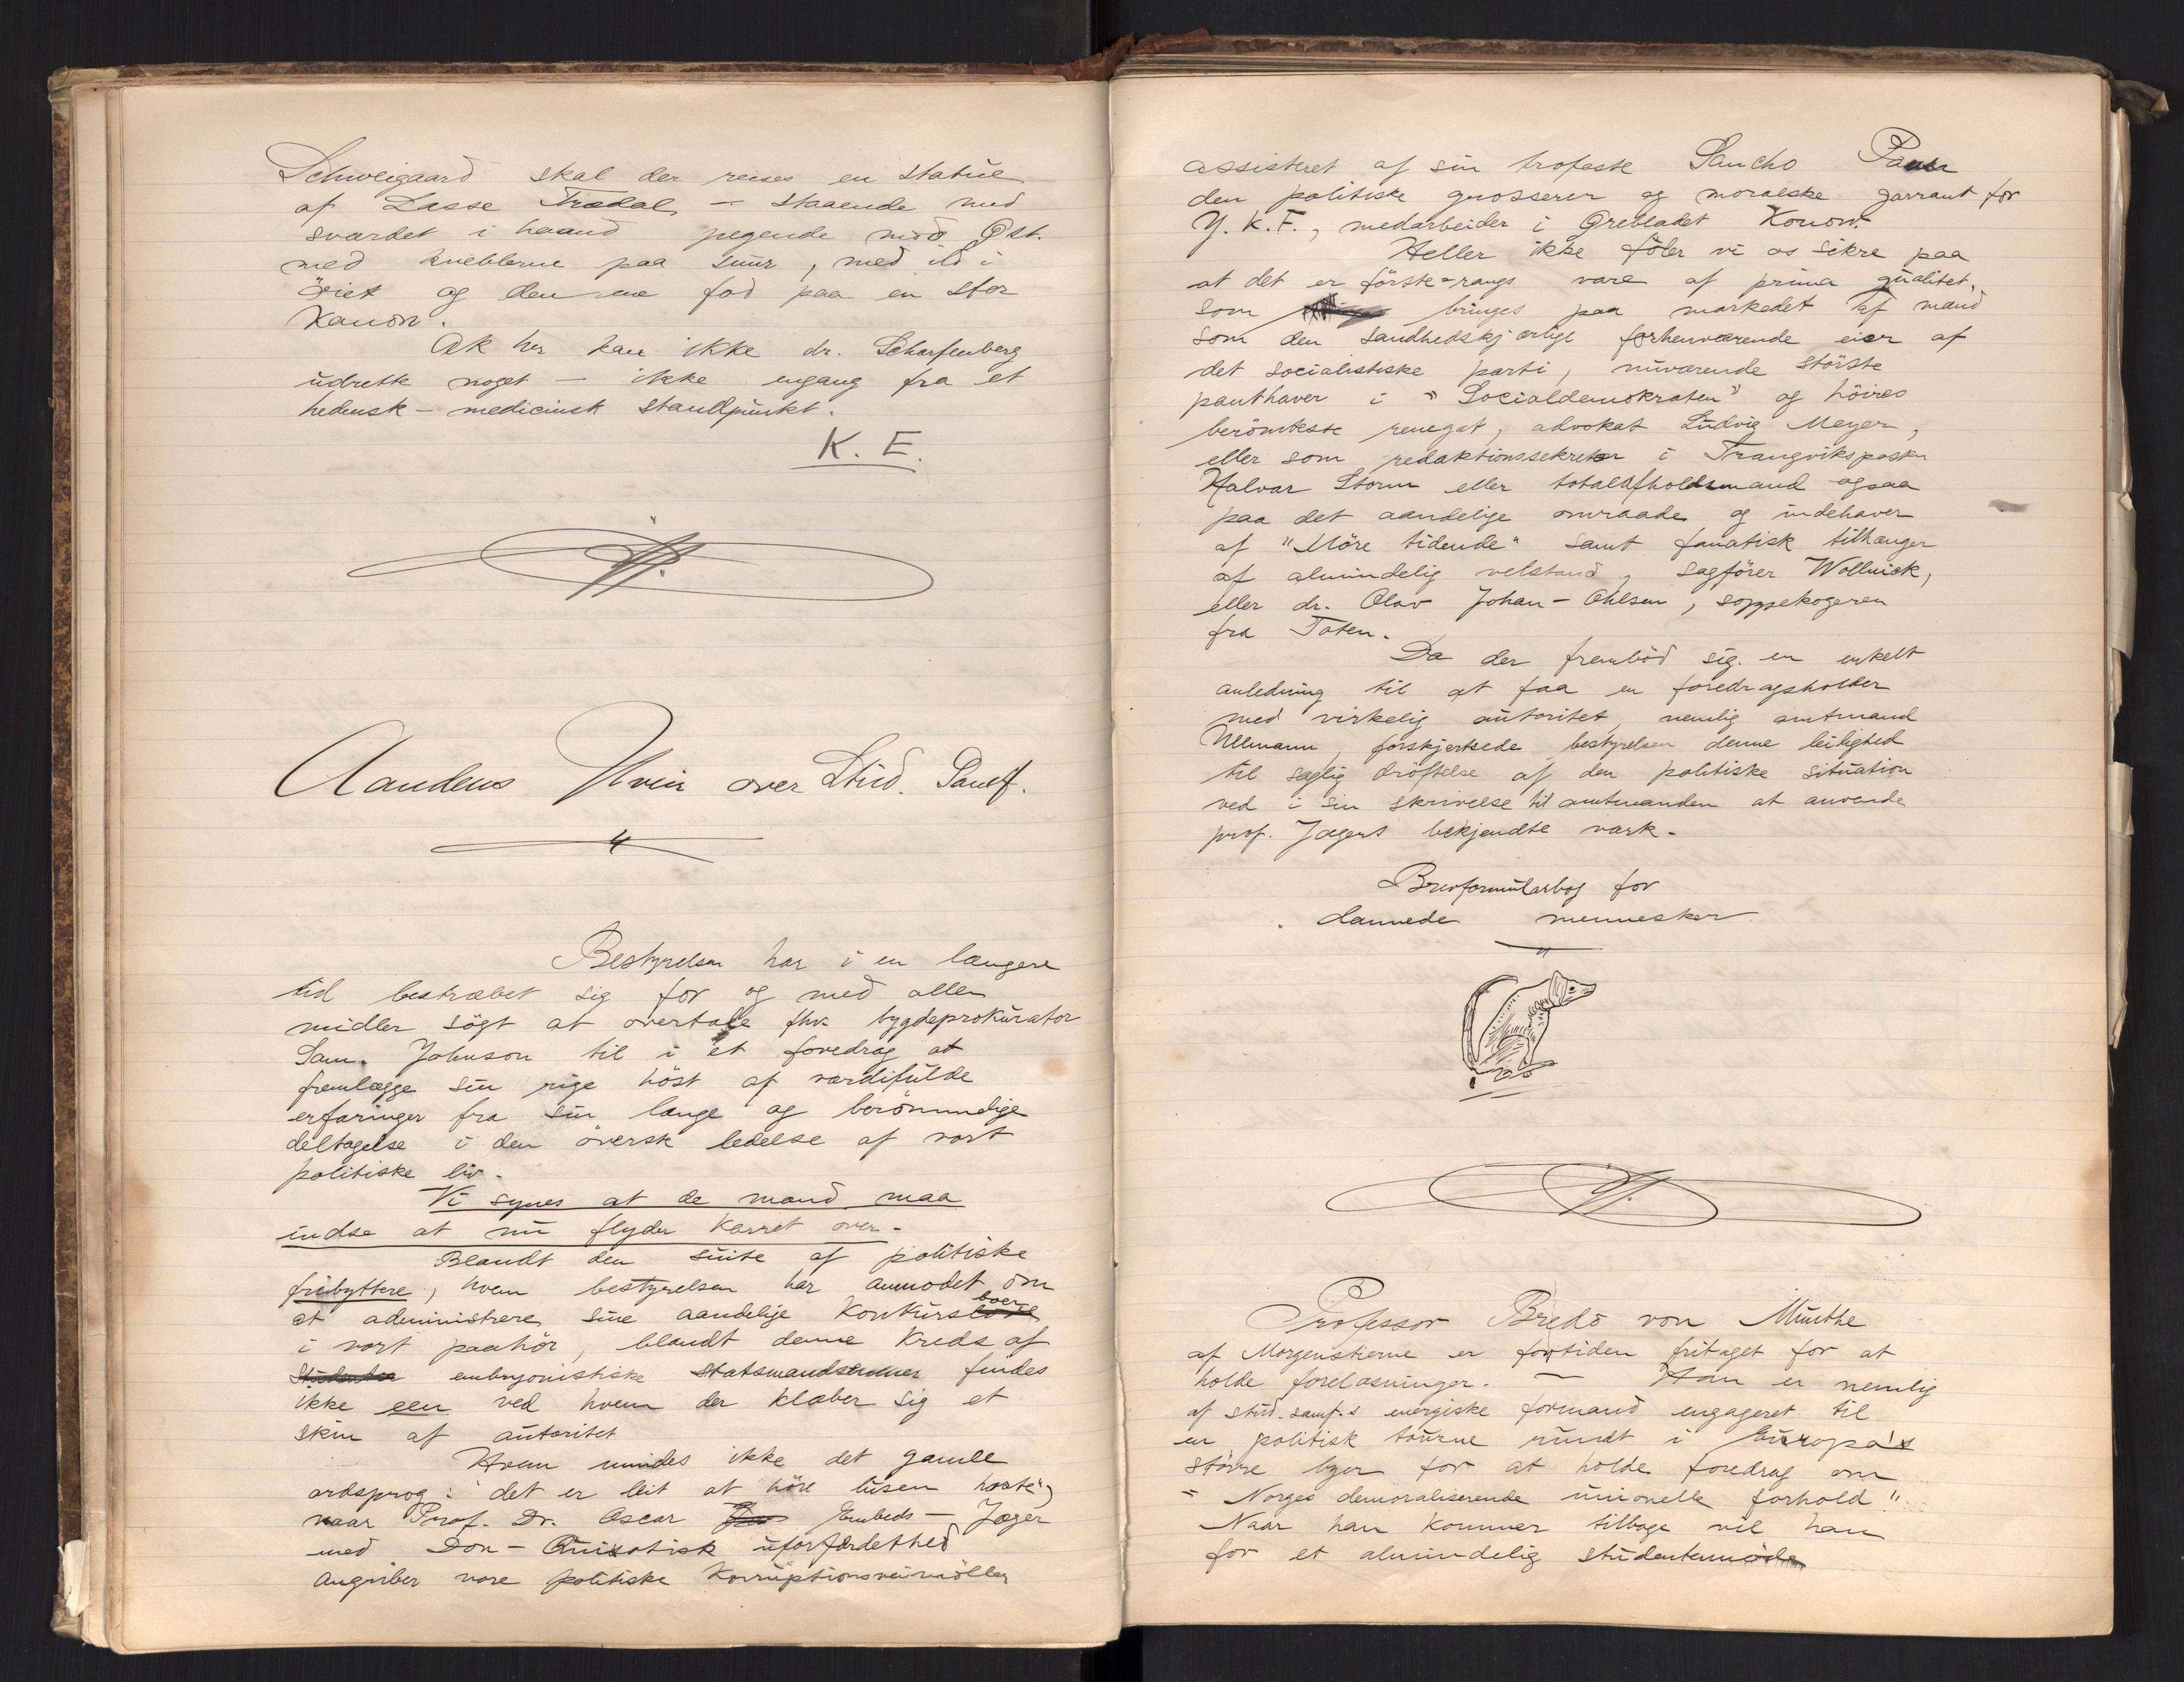 Schweigaard skal der reises en statue
af Lasse Trædal, – staaende med
sværdet i haand pegende mod Øst.
med kneblerne paa snur, med ild i
öiet og den ene fod paa en stor
Kanon.
Ak her kan ikke dr. Scharfenberg
udrette noget – ikke engang fra et
hedensk – medicinsk standpunkt.
K. E.
Aandens Hvin over Stud. Samf.
Bestyrelsen har i en længere
tid bestræbet sig for og med alle
midler sögt at overtale fhv. bygdeprokurator
Sam. Johnson til i et foredrag at
fremlægge sin rige höst af værdifulde
erfaringer fra sin lange og berömmelige
deltagelse i den överste ledelse af vort
politiske liv.
Vi synes at de mænd maa
indse at nu flyder Karret over.
Blandt den suite af politiske
fribyttere, hvem bestyrelsen har anmodet om
at administrere sine aandelige Konkursboer
i vort paahör, blandt denne Kreds af
Studenter embryonistiske statsmandsemner findes
ikke een ved hvem der klæber sig et
skin af autoritet
Hvem mindes ikke det gamle
ordsprog: det er leit at höre lusen hoste",
naar Prof. Dr. Oscar Embeds – Jæger
med Don – Quisotisk uforfærdethed
angriber vore politiske Korruptionsveirmöller
assisteret af sin trofaste Sancho Panza
den politiske grosserer og moralske garrant for
Y. K. F., medarbeider i Örebladet Konow.
Heller ikke föler vi os sikre paa
at det er förste-rangs vare af prima qualitet,
som bringes paa markedet af mænd
som den sandhedskjærlige forhenværende eier af
det socialistiske parti, nuværende störste
panthaver i "Socialdemokraten" og höires
berömteste renegat, advokat Ludvig Meyer,
eller som redaktionssekretær i Trangviksposten
Halvar Storm eller totalafholdsmand ogsaa
paa det aandelige omraade og indehaver
af "Möre tidende" samt fanatisk tilhænger
af almindelig velstand, sagförer Wollnick,
eller dr. Olav Johan – Ohlsen, soppekogeren
fra Toten.
Da der fremböd sig en enkelt
anledning til at faa en foredragsholder
med virkelig autoritet, nemlig amtmand
Ullmann, forskjertsede bestyrelsen denne leilighed
til saglig dröftelse af den politiske situation
ved i sin skrivelse til amtmanden at anvende
prof. Jægers bekjendte værk.
Brevformularbog for
dannede mennesker
Professor Bredo von Munthe
af Morgenstierne er fortiden fritaget for at
holde forelæsninger. – Han er nemlig
af stud. samf.s energiske formand engageret til
en politisk tourne rundt i Europa's
större byer for at holde foredrag om
" Norges demoraliserende unionelle forhold"
Naar han kommer tilbage vil han
for et almindelig studentermöde